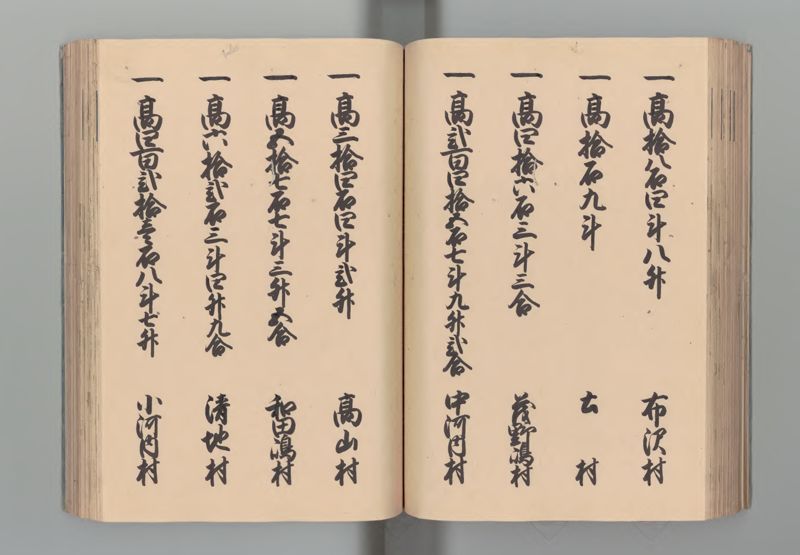 一高拾八石四斗八升 布沢村
一高拾石九斗 村
一高四拾六石三斗三合 茂野嶋村
一高弐百四拾五石七斗九升弐合 中河内村
一高三拾四石四斗弐升 高山村
一高五拾七石七斗三升五合 和田嶋村
一高六拾弐石三斗四升九合 清地村
一高四百弐拾壱石八斗七升 小河内村